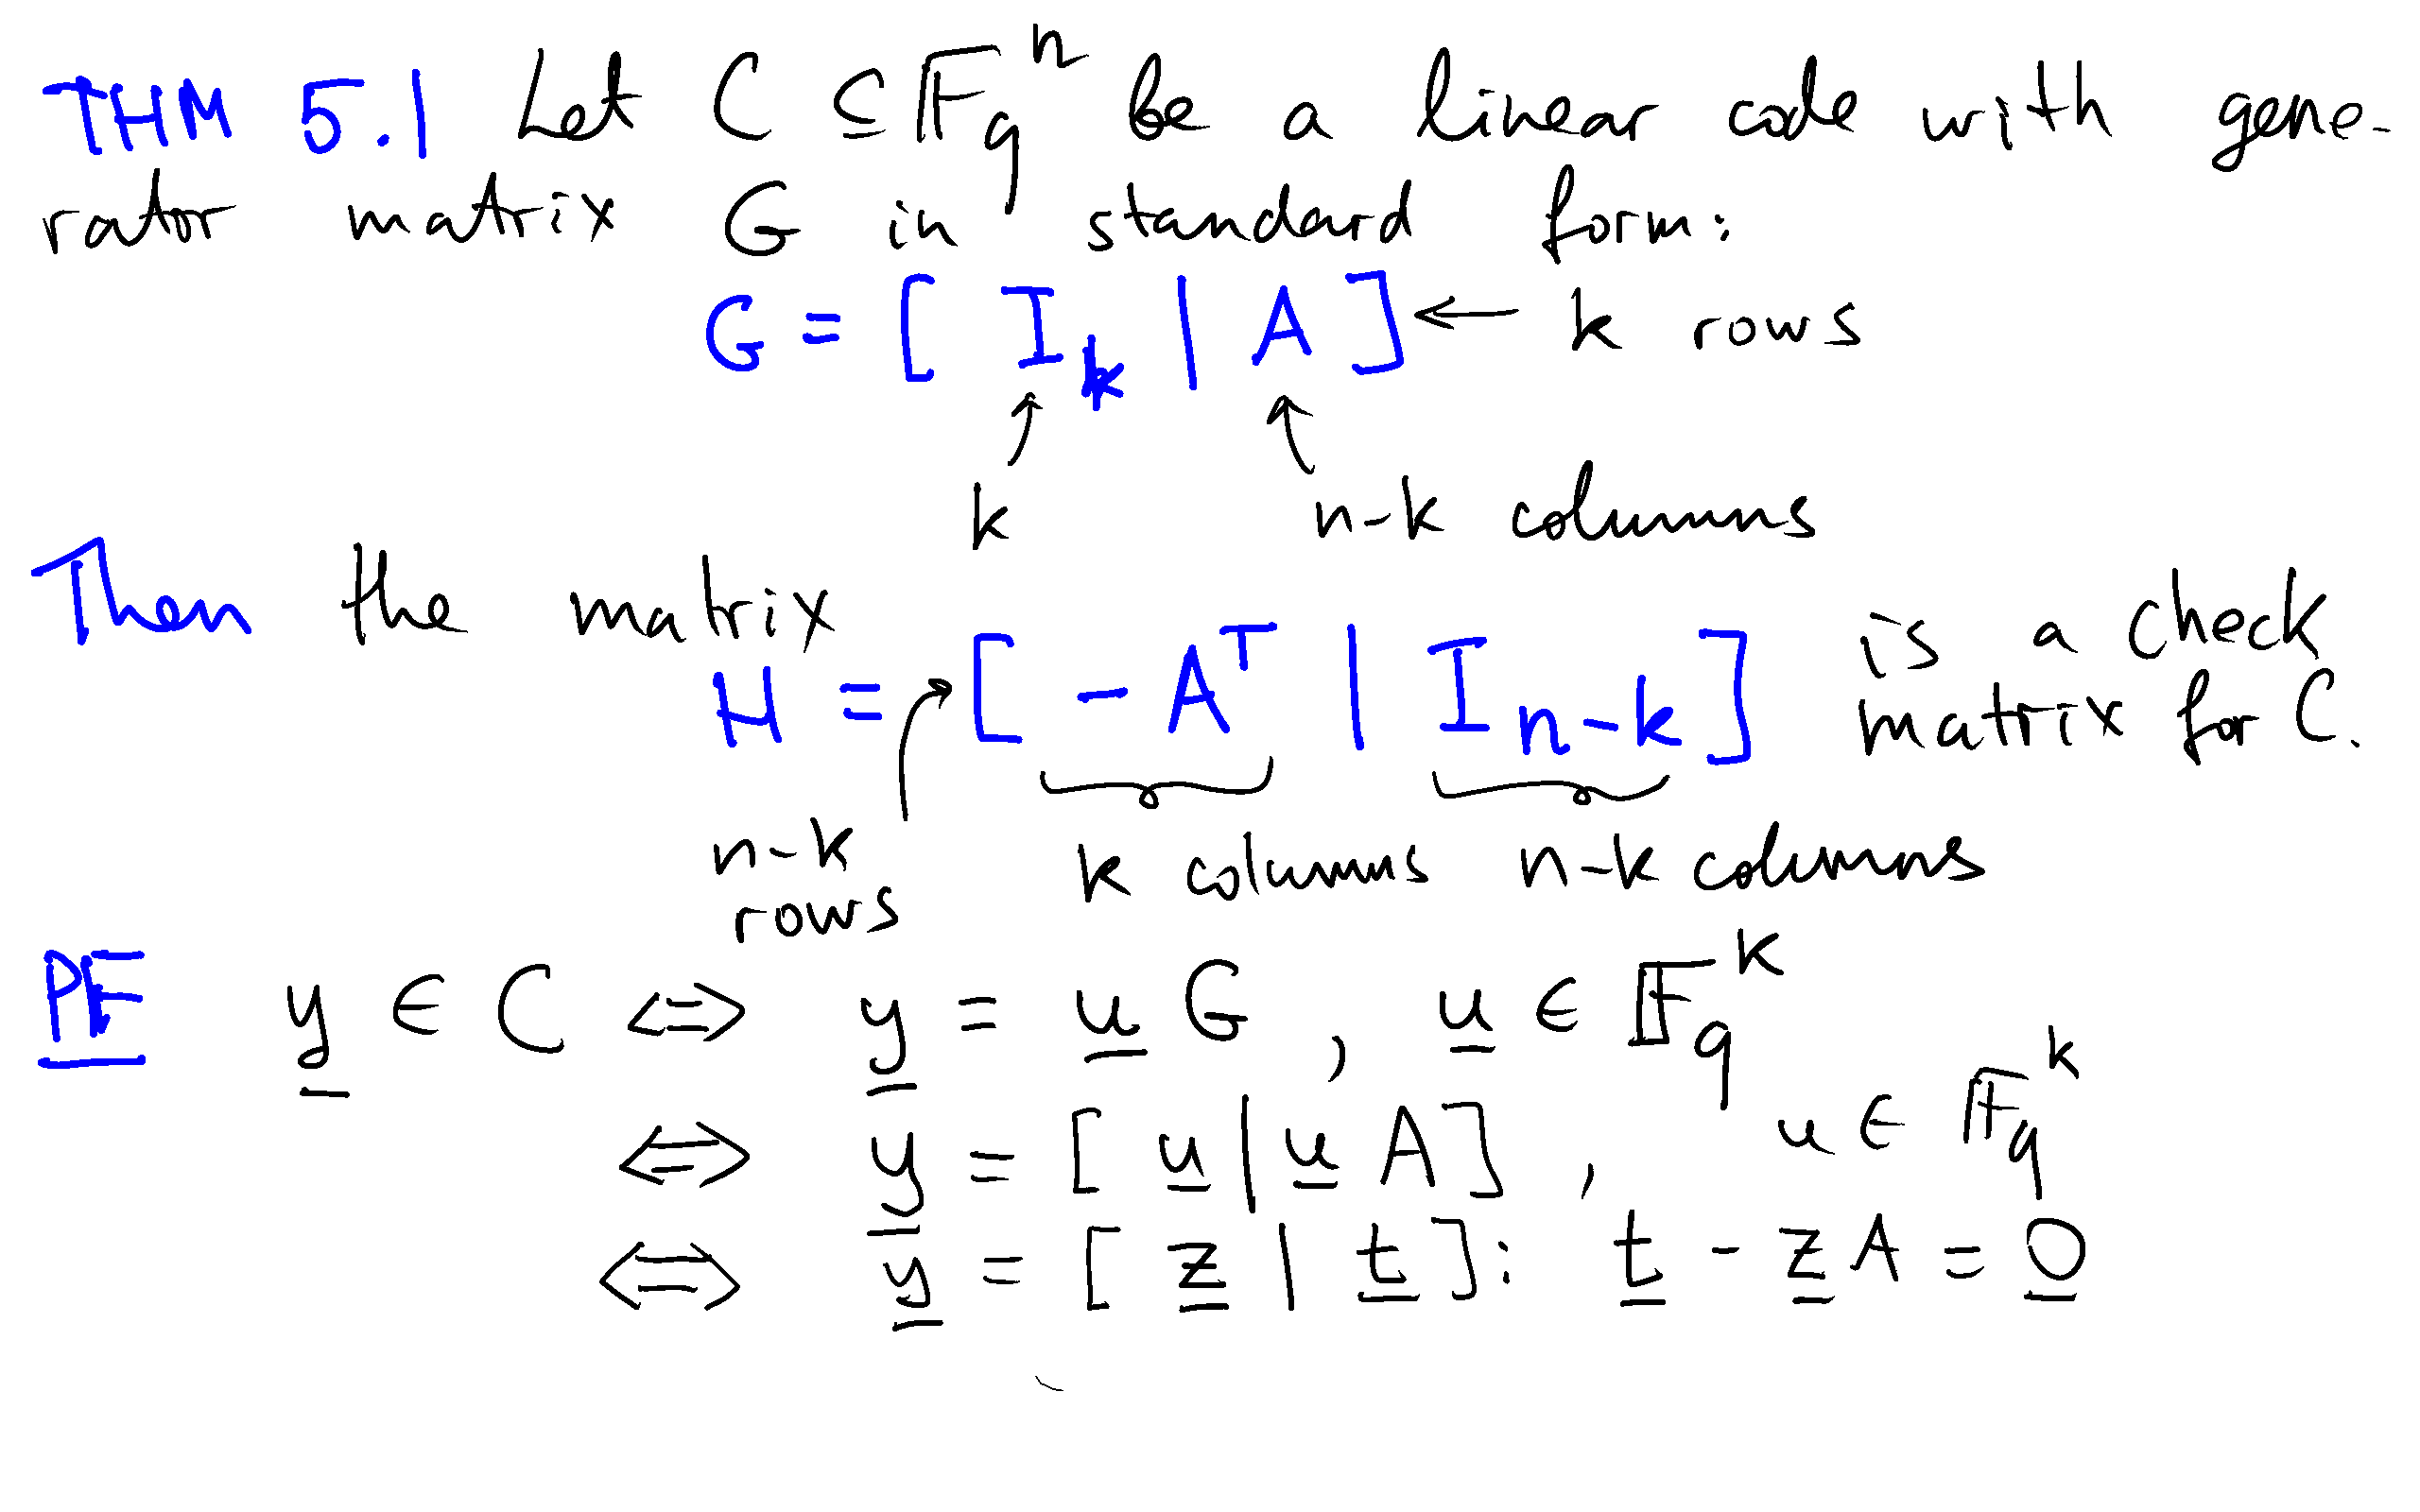 THM 5.1 Let C ⊆ 𝔽_q^n be a linear code with gene-
rator matrix G in standard form:
G = [ I_k | A ] ← k rows
k n-k columns
Then the matrix
H = [ -A^T | I_{n-k} ] is a check
matrix for C.
n-k
rows
k columns n-k columns
PF y ∈ C ⇔ y = u G , u ∈ 𝔽_q^k
⇔ y = [ u | u A ] , u ∈ 𝔽_q^k
⇔ y = [ z | t ] : t - z A = 0